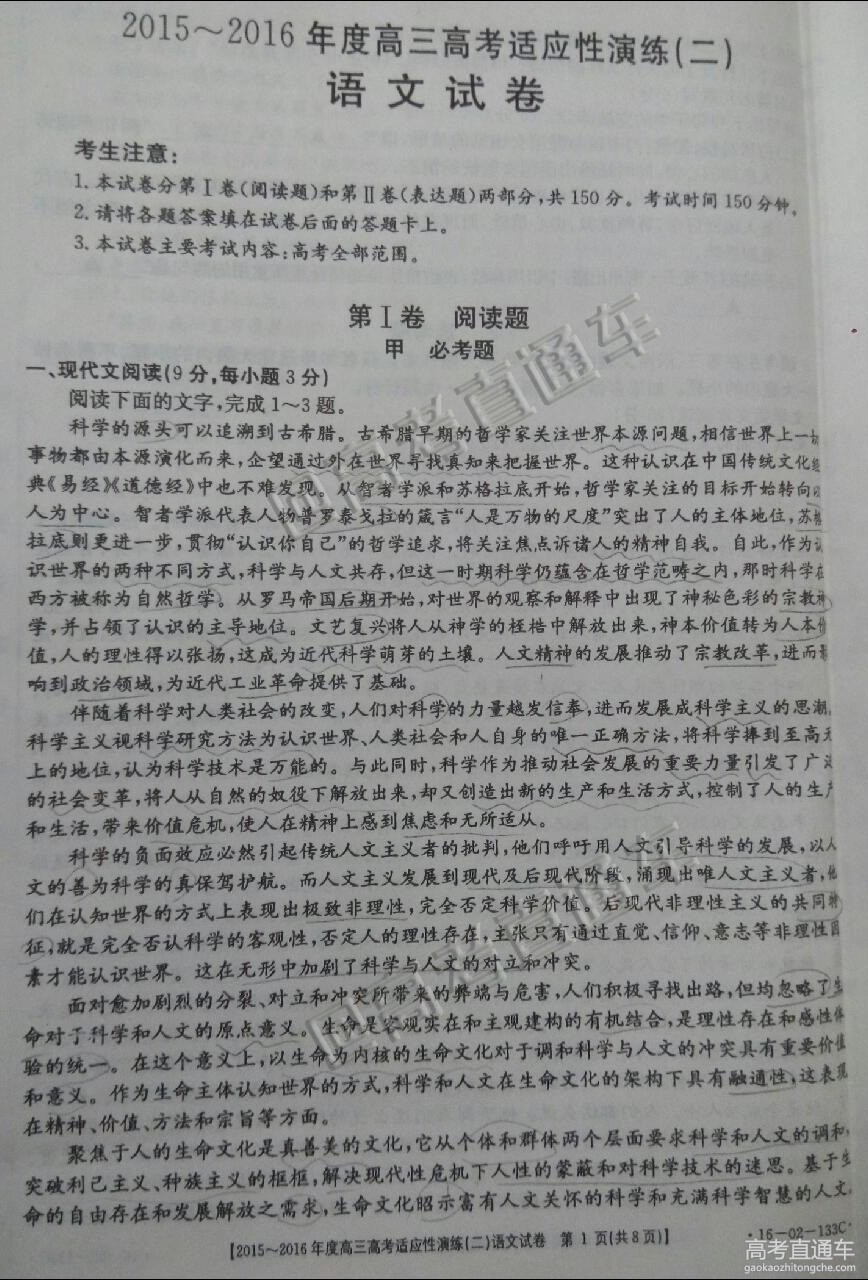 2015～2016年度高三高考适应性演练(二)
语文试卷
考生注意：
1.本试卷分第Ⅰ卷(阅读题)和第Ⅱ卷(表达题)两部分,共150分。考试时间150分钟。
2.请将各题答案填在试卷后面的答题卡上。
3.本试卷主要考试内容:高考全部范围。
第Ⅰ卷 阅读题
甲 必考题
一、现代文阅读(9分,每小题3分)
阅读下面的文字,完成1～3题。
科学的源头可以追溯到古希腊。古希腊早期的哲学家关注世界本源问题,相信世界上一切
事物都由本源演化而来,企望通过外在世界寻找真知来把握世界。这种认识在中国传统文化经
典《易经》《道德经》中也不难发现。从智者学派和苏格拉底开始,哲学家关注的目标开始转向以
人为中心。智者学派代表人物普罗泰戈拉的箴言“人是万物的尺度”突出了人的主体地位,苏格
拉底则更进一步,贯彻“认识你自己”的哲学追求,将关注焦点诉诸人的精神自我。自此,作为认
识世界的两种不同方式,科学与人文共存,但这一时期科学仍蕴含在哲学范畴之内,那时科学在
西方被称为自然哲学。从罗马帝国后期开始,对世界的观察和解释中出现了神秘色彩的宗教神
学,并占领了认识的主导地位。文艺复兴将人从神学的桎梏中解放出来,神本价值转为人本价
值,人的理性得以张扬,这成为近代科学萌芽的土壤。人文精神的发展推动了宗教改革,进而影
响到政治领域,为近代工业革命提供了基础。
伴随着科学对人类社会的改变,人们对科学的力量越发信奉,进而发展成科学主义的思潮。
科学主义视科学研究方法为认识世界、人类社会和人自身的唯一正确方法,将科学捧到至高无
上的地位,认为科学技术是万能的。与此同时,科学作为推动社会发展的重要力量引发了广泛
的社会变革,将人从自然的奴役下解放出来,却又创造出新的生产和生活方式,控制了人的生产
和生活,带来价值危机,使人在精神上感到焦虑和无所适从。
科学的负面效应必然引起传统人文主义者的批判,他们呼吁用人文引导科学的发展,以人
文的善为科学的真保驾护航。而人文主义发展到现代及后现代阶段,涌现出唯人文主义者,他
们在认知世界的方式上表现出极致非理性,完全否定科学价值。后现代非理性主义的共同特
征,就是完全否认科学的客观性,否定人的理性存在,主张只有通过直觉、信仰、意志等非理性因
素才能认识世界。这在无形中加剧了科学与人文的对立和冲突。
面对愈加剧烈的分裂、对立和冲突所带来的弊端与危害,人们积极寻找出路,但均忽略了生
命对于科学和人文的原点意义。生命是客观实在和主观建构的有机结合,是理性存在和感性体
验的统一。在这个意义上,以生命为内核的生命文化对于调和科学与人文的冲突具有重要价值
和意义。作为生命主体认知世界的方式,科学和人文在生命文化的架构下具有融通性,这表现
在精神、价值、方法和宗旨等方面。
聚焦于人的生命文化是真善美的文化,它从个体和群体两个层面要求科学和人文的调和,
突破利己主义、种族主义的框框,解决现代性危机下人性的蒙蔽和对科学技术的迷思。基于生
命的自由存在和发展解放之需求,生命文化昭示富有人文关怀的科学和充满科学智慧的人文,
【2015～2016年度高三高考适应性演练(二)语文试卷 第1页(共8页)】
·16-02-133C·
高考直通车
高考直通车
高考直通车
gaokaozhitongche.com